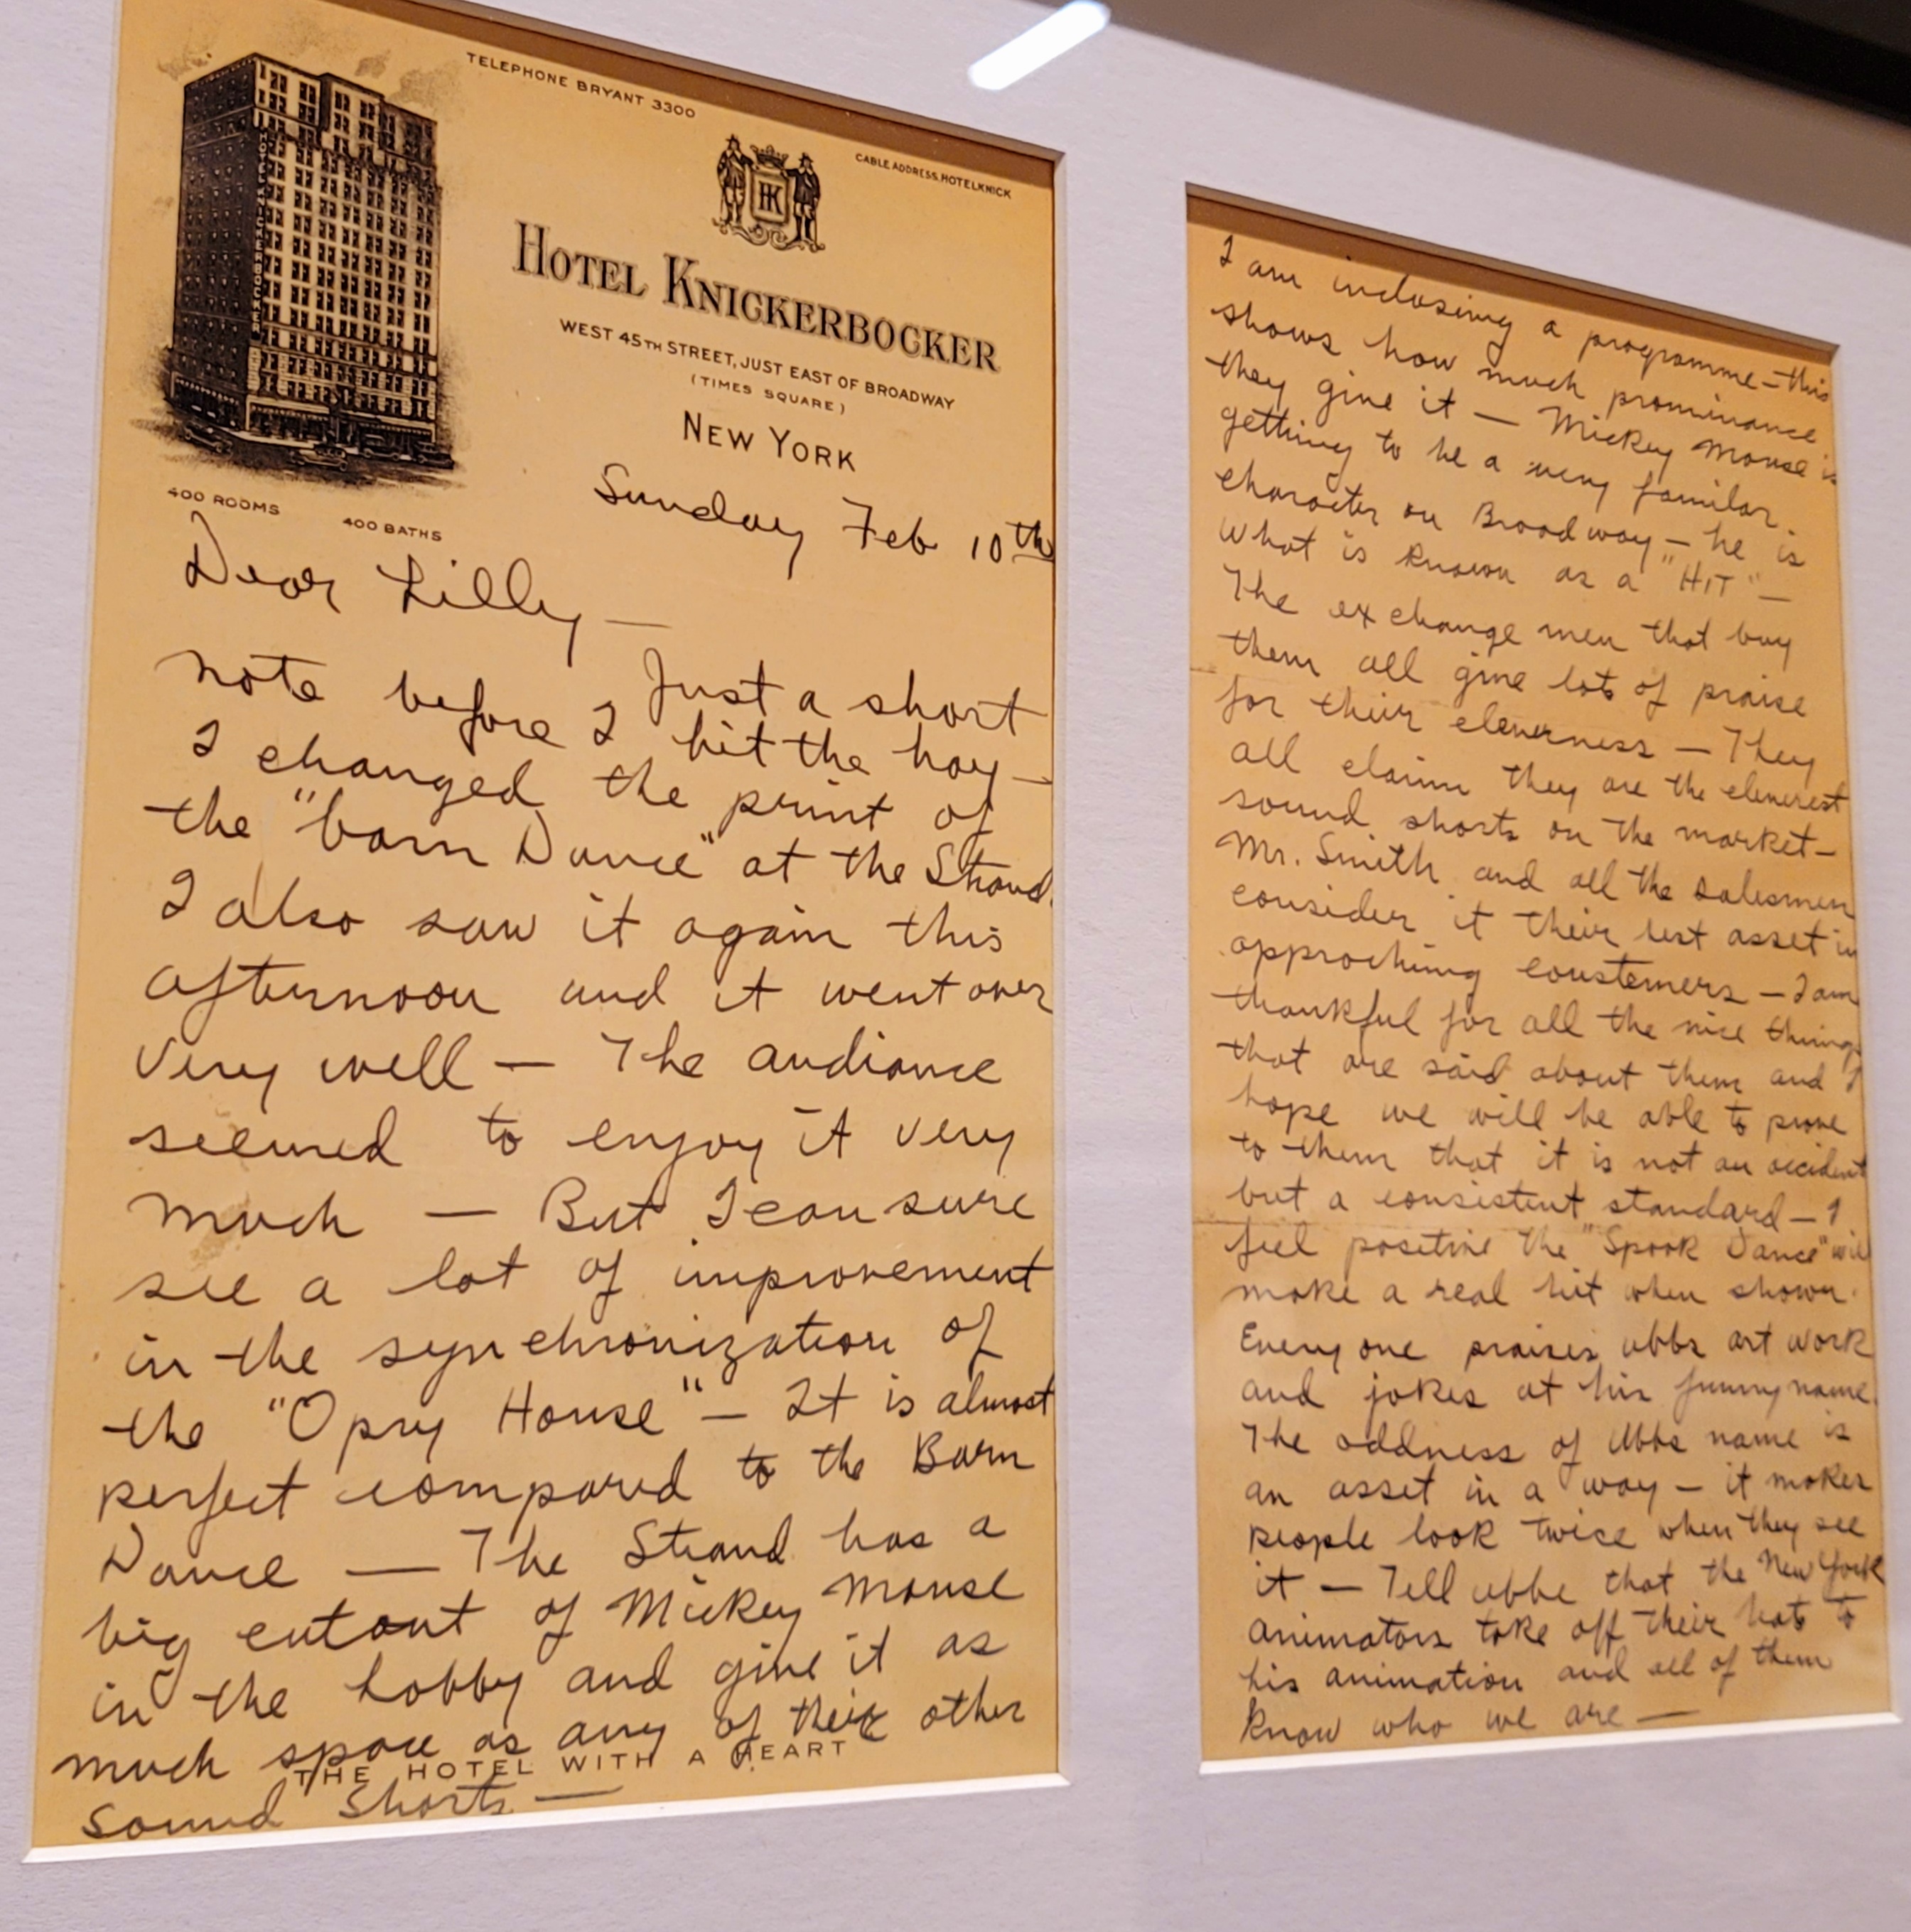 TELEPHONE BRYANT 3300
CABLE ADDRESS, HOTELKNICK
HK
HOTEL KNICKERBOCKER
HOTEL KNICKERBOCKER
WEST 45TH STREET, JUST EAST OF BROADWAY
(TIMES SQUARE)
NEW YORK
400 ROOMS 400 BATHS
Sunday Feb 10th
Dear Lilly —
Just a short
note before I hit the hay —
I changed the print of
the "barn Dance" at the Strand.
I also saw it again this
afternoon and it went over
very well — The audiance
seemed to enjoy it very
much — But I can sure
see a lot of improvement
in the synchronization of
the "Opry House" — It is almost
perfect compared to the Barn
Dance — The Strand has a
big cutout of Mickey Mouse
in the Lobby and give it as
much space as any of their other
THE HOTEL WITH A HEART
sound shorts —
I am inclosing a programme — this
shows how much prominance
they give it — Mickey Mouse is
getting to be a very familar
character on Broadway — he is
what is known as a "HIT" —
The exchange men that buy
them all give lots of praise
for their cleverness — They
all claim they are the cleverest
sound shorts on the market —
Mr. Smith and all the salesmen
consider it their best asset in
approching coustemers — I am
thankful for all the nice things
that are said about them and I
hope we will be able to prove
to them that it is not an accident
but a consistent standard — I
feel positive the "Spook Dance" will
make a real hit when shown.
Everyone praises ubbs art work
and jokes at his funny name.
The oddness of Ubbs name is
an asset in a way — it makes
people look twice when they see
it — Tell ubbe that the New York
animators take off their hats to
his animation and all of them
know who we are —